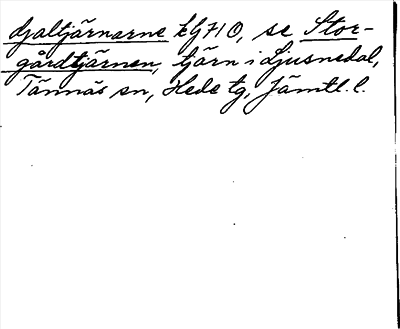 djaltjärnarne EG710, se Stor-
gårdtjärnen, tjärn i Ljusnedal,
Tännäs sn, Hede tg, Jämtl. l.